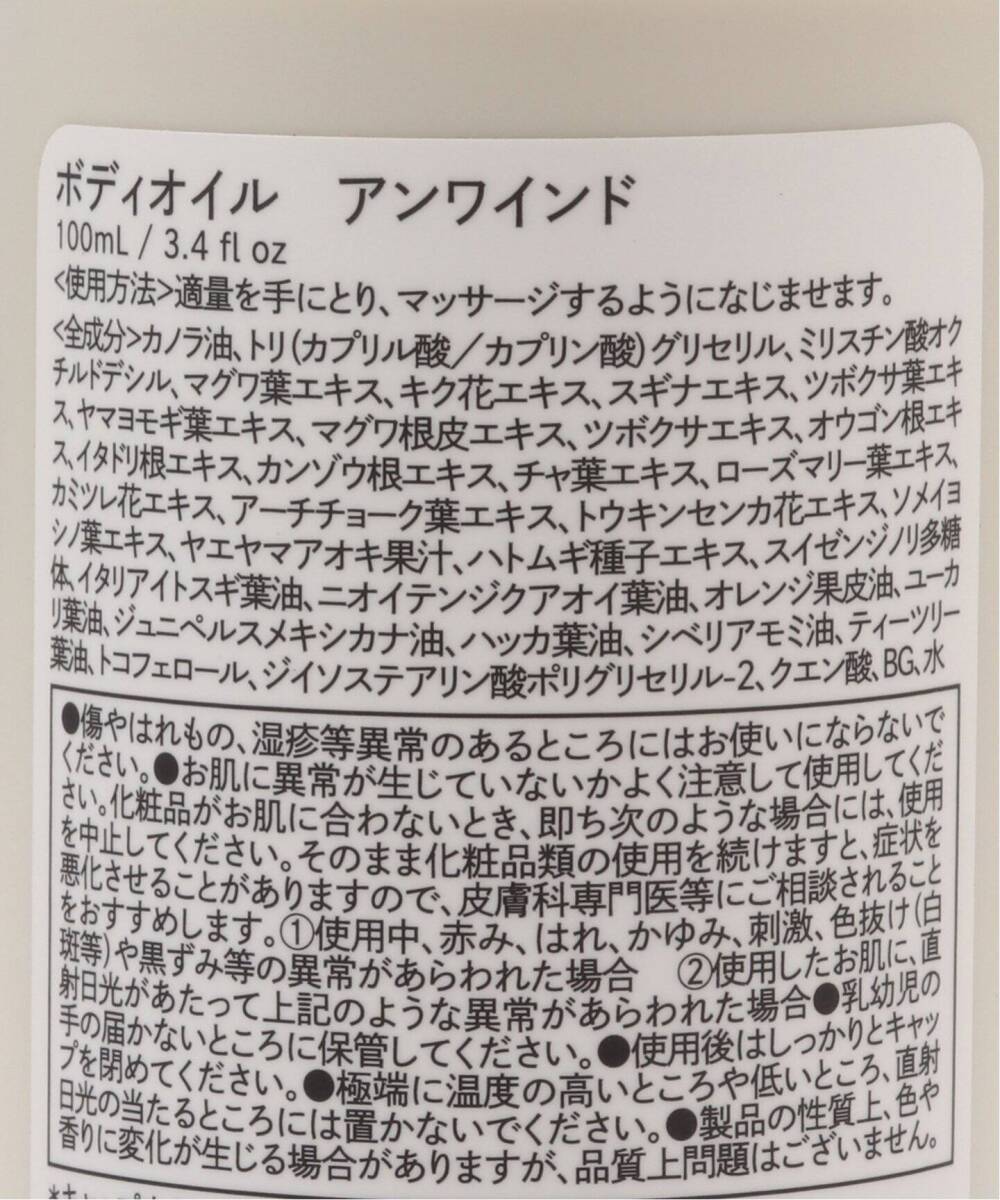 ボディオイル　アンワインド
100mL / 3.4 fl oz
<使用方法>適量を手にとり、マッサージするようになじませます。
<全成分>カノラ油、トリ(カプリル酸／カプリン酸)グリセリル、ミリスチン酸オク
チルドデシル、マグワ葉エキス、キク花エキス、スギナエキス、ツボクサ葉エキ
ス、ヤマヨモギ葉エキス、マグワ根皮エキス、ツボクサエキス、オウゴン根エキ
ス、イタドリ根エキス、カンゾウ根エキス、チャ葉エキス、ローズマリー葉エキス、
カミツレ花エキス、アーチチョーク葉エキス、トウキンセンカ花エキス、ソメイヨ
シノ葉エキス、ヤエヤマアオキ果汁、ハトムギ種子エキス、スイゼンジノリ多糖
体、イタリアイトスギ葉油、ニオイテンジクアオイ葉油、オレンジ果皮油、ユーカ
リ葉油、ジュニペルスメキシカナ油、ハッカ葉油、シベリアモミ油、ティーツリー
葉油、トコフェロール、ジイソステアリン酸ポリグリセリル-2、クエン酸、BG、水
●傷やはれもの、湿疹等異常のあるところにはお使いにならないで
ください。●お肌に異常が生じていないかよく注意して使用してくだ
さい。化粧品がお肌に合わないとき、即ち次のような場合には、使用
を中止してください。そのまま化粧品類の使用を続けますと、症状を
悪化させることがありますので、皮膚科専門医等にご相談されること
をおすすめします。①使用中、赤み、はれ、かゆみ、刺激、色抜け(白
斑等)や黒ずみ等の異常があらわれた場合　②使用したお肌に、直
射日光があたって上記のような異常があらわれた場合●乳幼児の
手の届かないところに保管してください。●使用後はしっかりとキャッ
プを閉めてください。●極端に温度の高いところや低いところ、直射
日光の当たるところには置かないでください。●製品の性質上、色や
香りに変化が生じる場合がありますが、品質上問題はございません。